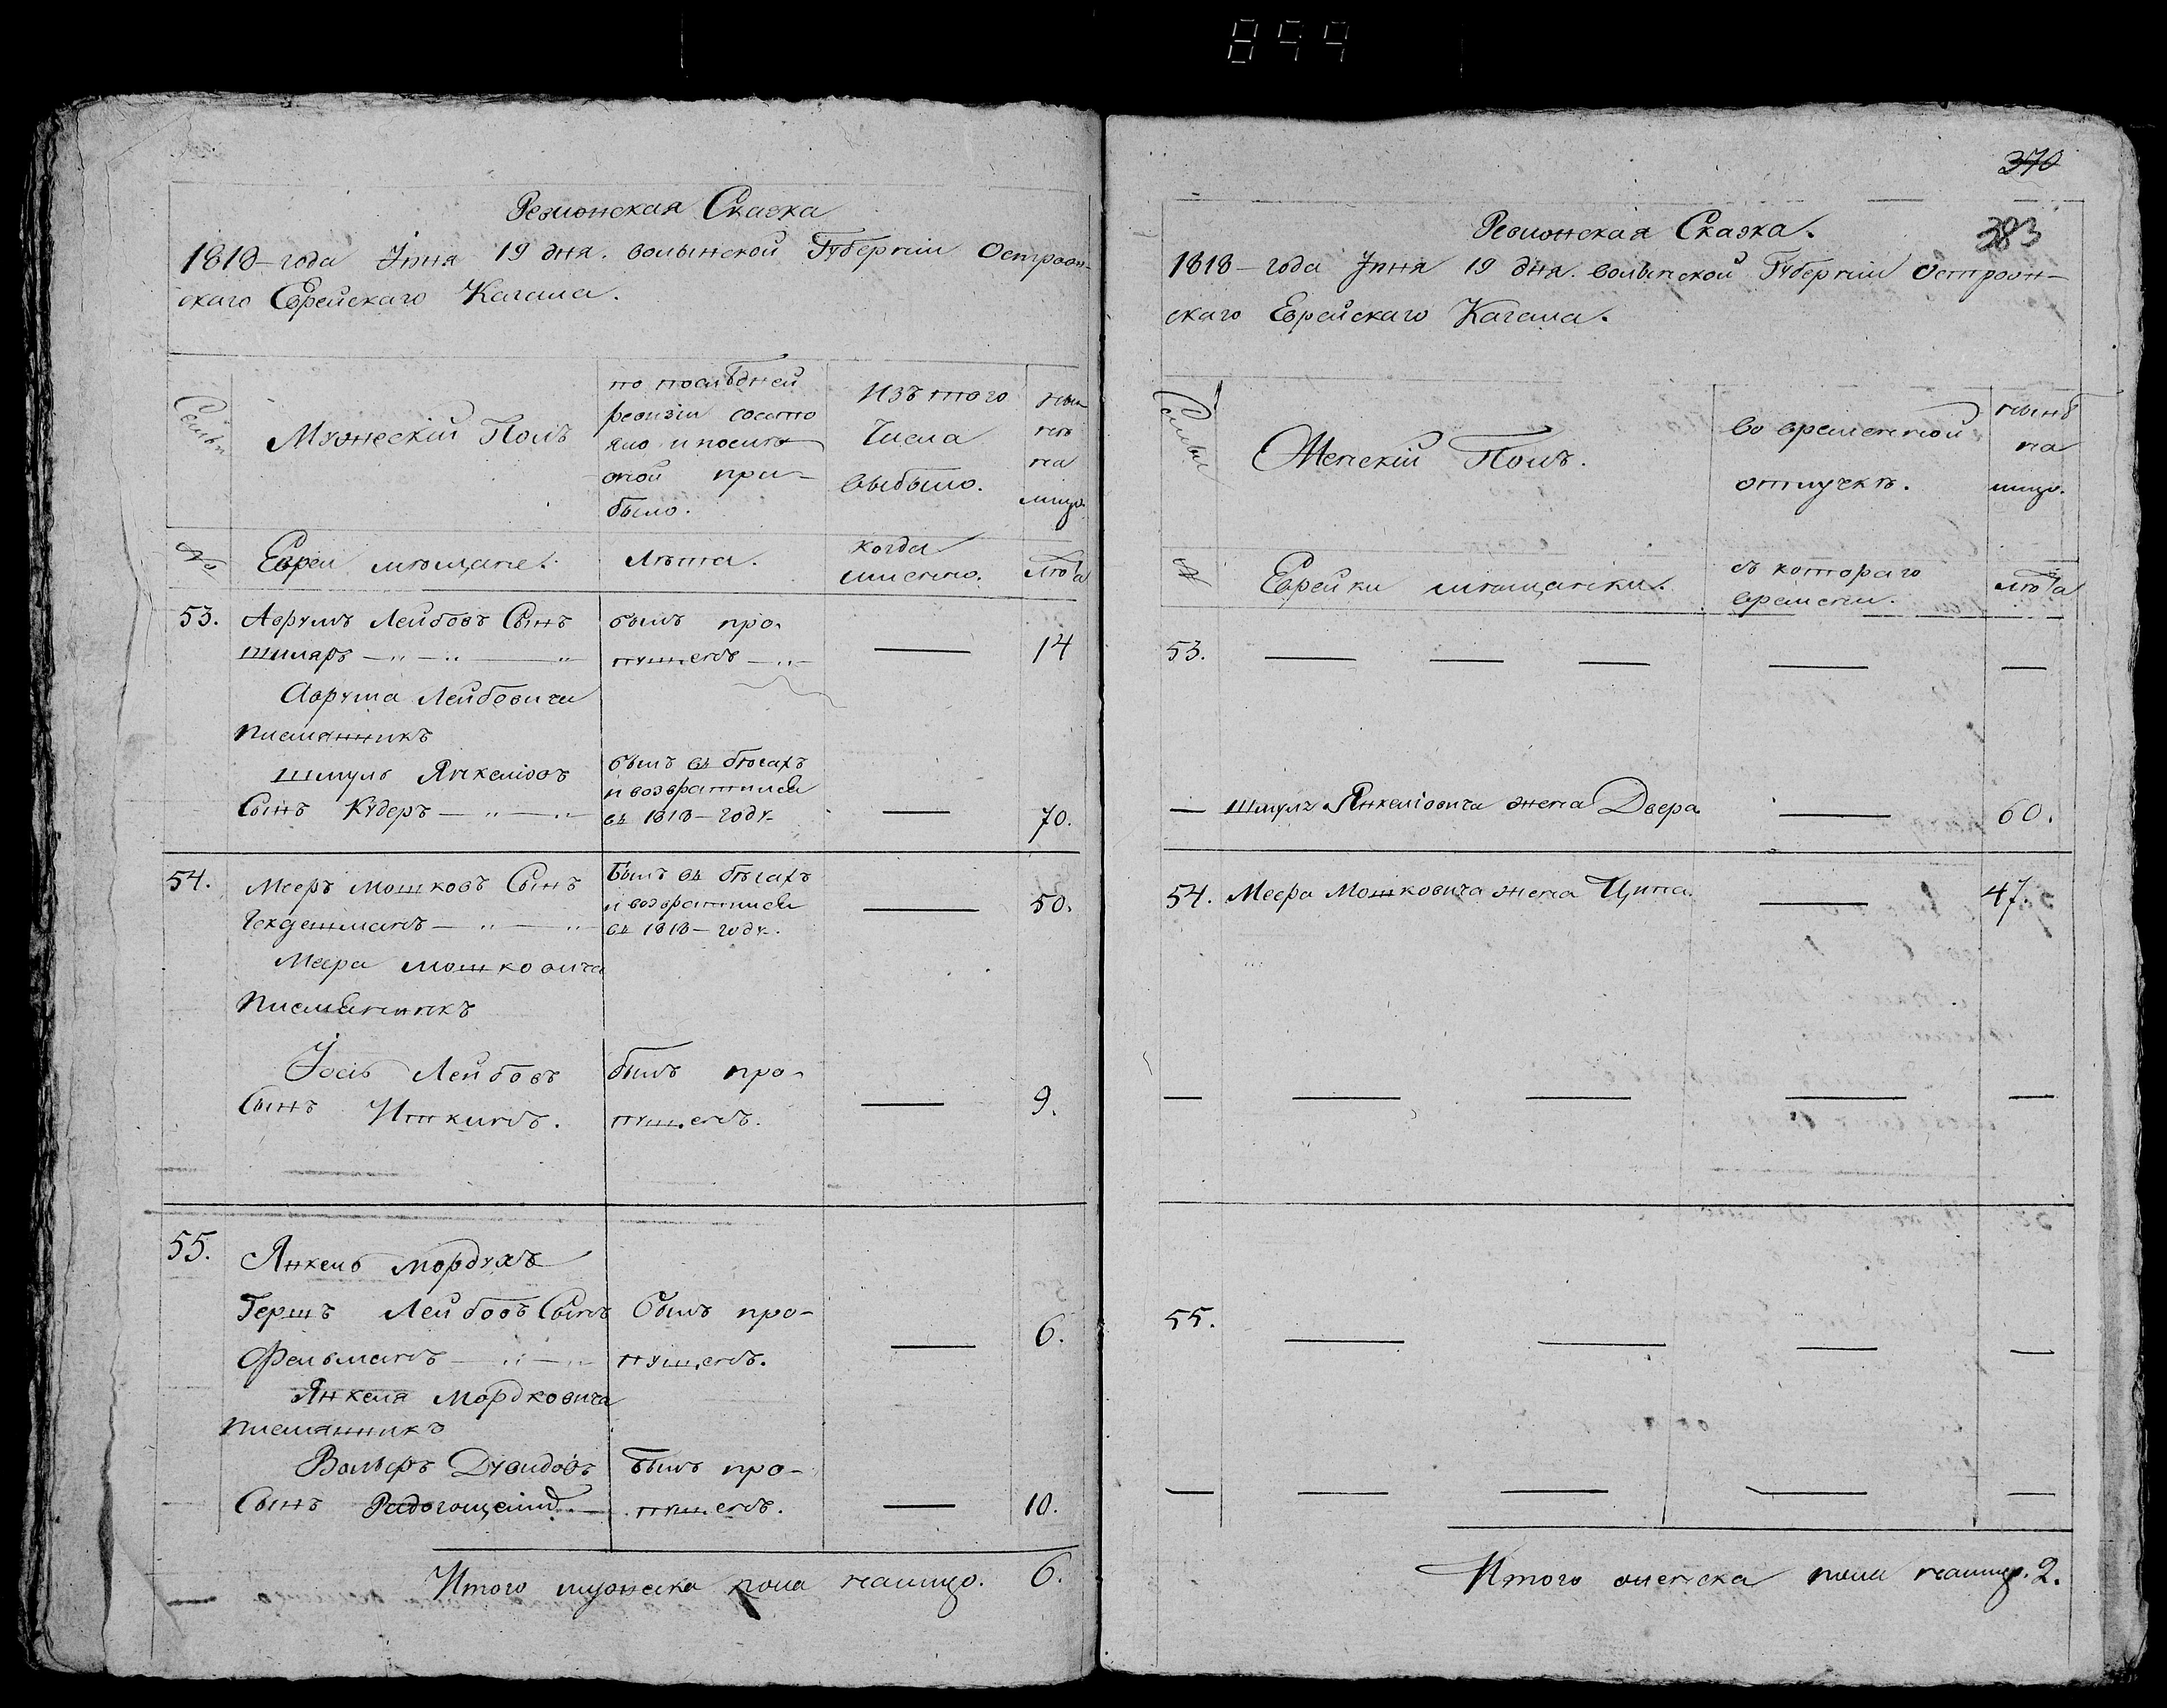 899
Ревизская Сказка
1818 года Іюня 19 дня. волынской Губерніи Острожн-
скаго Еврейскаго Кагала.
Семьи
Мужескій Полъ
по последней
ревизіи состо
яло и после
оной при-
было.
Изъ того
Числа
выбыло.
нын
не
на
лицо.
№
Евреи мещане.
Лета.
когда
именно.
лета
53. Аврумъ Лейбовъ Сынъ
Шпиларъ
былъ про-
пущенъ
14
Аврума Лейбовича
племянникъ
Шмуль Янкеліовъ
Сынъ Кудеръ
былъ въ бегахъ
и возвратился
въ 1818 году.
70.
54. Мееръ Мошковъ Сынъ
былъ въ бегахъ
и возвратился
въ 1818 году.
50.
Меера Мошковича
племянникъ
Іось Лейбовъ
Сынъ Ицкинъ.
былъ про-
пущенъ.
9.
55. Янкель Мордухъ
Гершъ Лейбовъ Сынъ
Фельманъ
Былъ про-
пущенъ.
6.
Янкеля Мордковича
племянникъ
Вольфъ Дувидовъ
Сынъ
былъ про-
пущенъ.
10.
Итого мужеска пола налицо. 6.
370
383
Ревизская Сказка.
1818 года Іюня 19 дня. волынской Губерніи Острожн-
скаго Еврейскаго Кагала.
Семьи
Женскій Полъ.
во временной
отлучке.
ныне
на
лицо.
№
Еврейки мещанки.
съ котораго
времени.
лета
53.
Шмуля Янкеліовича жена Двера
60.
54. Меера Мошковича жена Ципа
47.
55.
Итого женска пола налицо. 2.